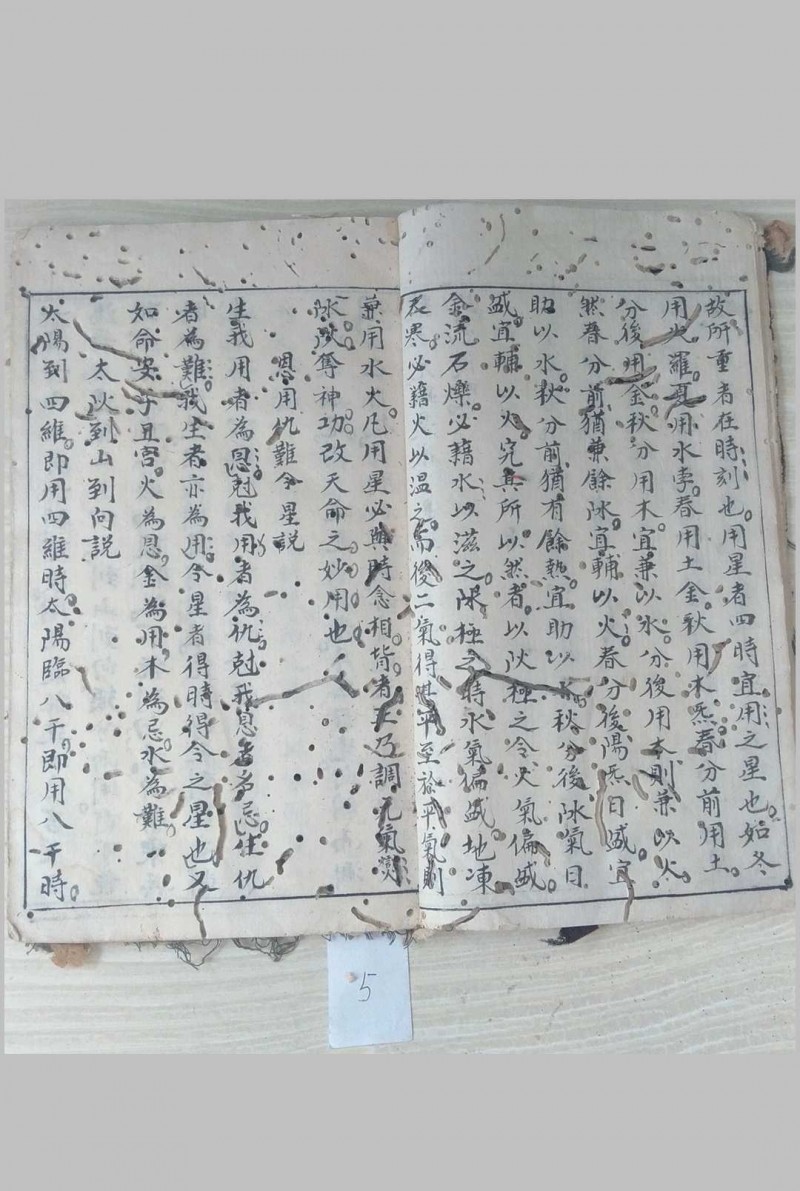 故所重者在時刻也。用星者四時宜用之星也。如冬
用火羅。夏用水孛。春用土金。秋用木炁。春分前用土。
分後用金。秋分用木。宜兼以水。分後用木則兼以火。
然春分前猶兼餘阴。宜輔以火。春分後陽炁日盛。宜
助以水。秋分前猶有餘熱。宜助以 秋分後阴氣日
盛。宜輔以火。究其所以然者。以阦極之令。火氣偏盛
金流石爍。必藉水以滋之。阴極之時。水氣偏盛。地凍
天寒。必藉火以温之。而後二氣得其平。至於平氣則
兼用水火。凡用星必與時令相背者。正乃調元氣。燮
阴阦。奪神功。改天命之妙用也
恩用仇難令星説
生我用者為恩。尅我用者為仇。尅我恩者為忌。生仇
者為難。我生者亦為用。令星者得時得令之星也。又
如命安子丑宫。火為恩。金為用。木為忌。水為難。
太阦到山到向説
太陽到四維。即用四維時。太陽臨八干。即用八干時。
5